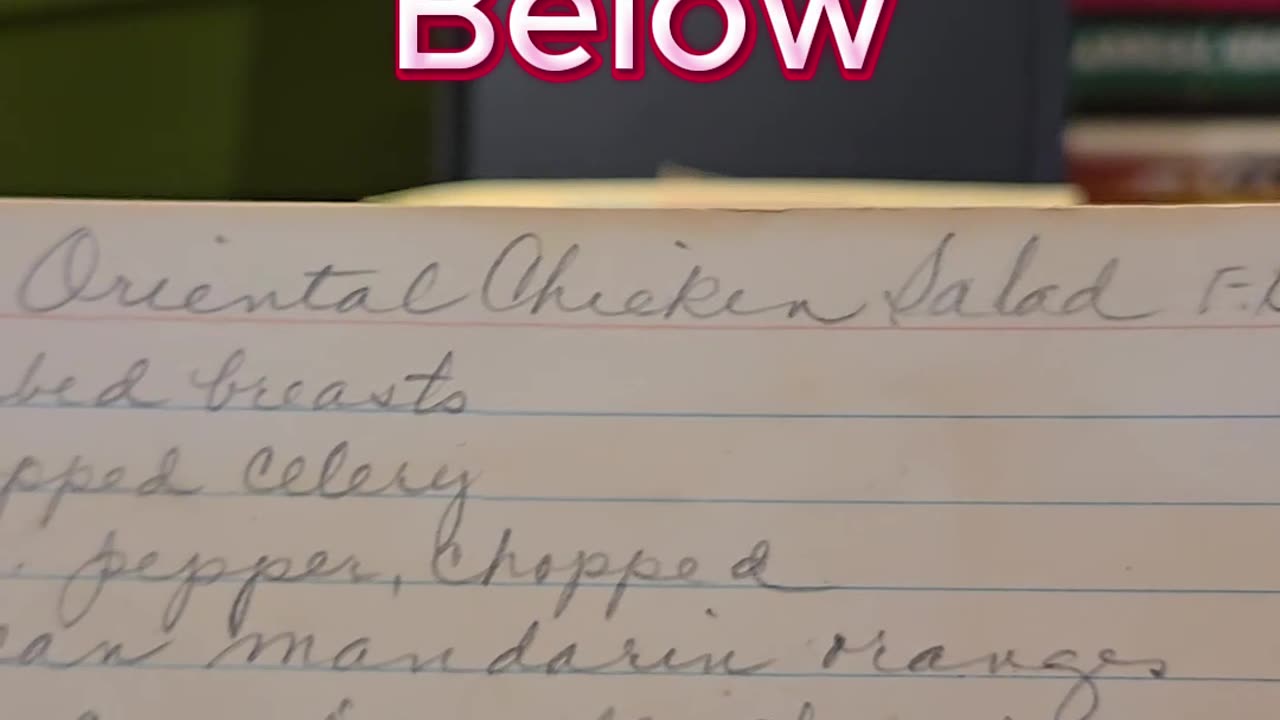 Below
Oriental Chicken Salad
breasts
celery
pepper, chopped
mandarin oranges